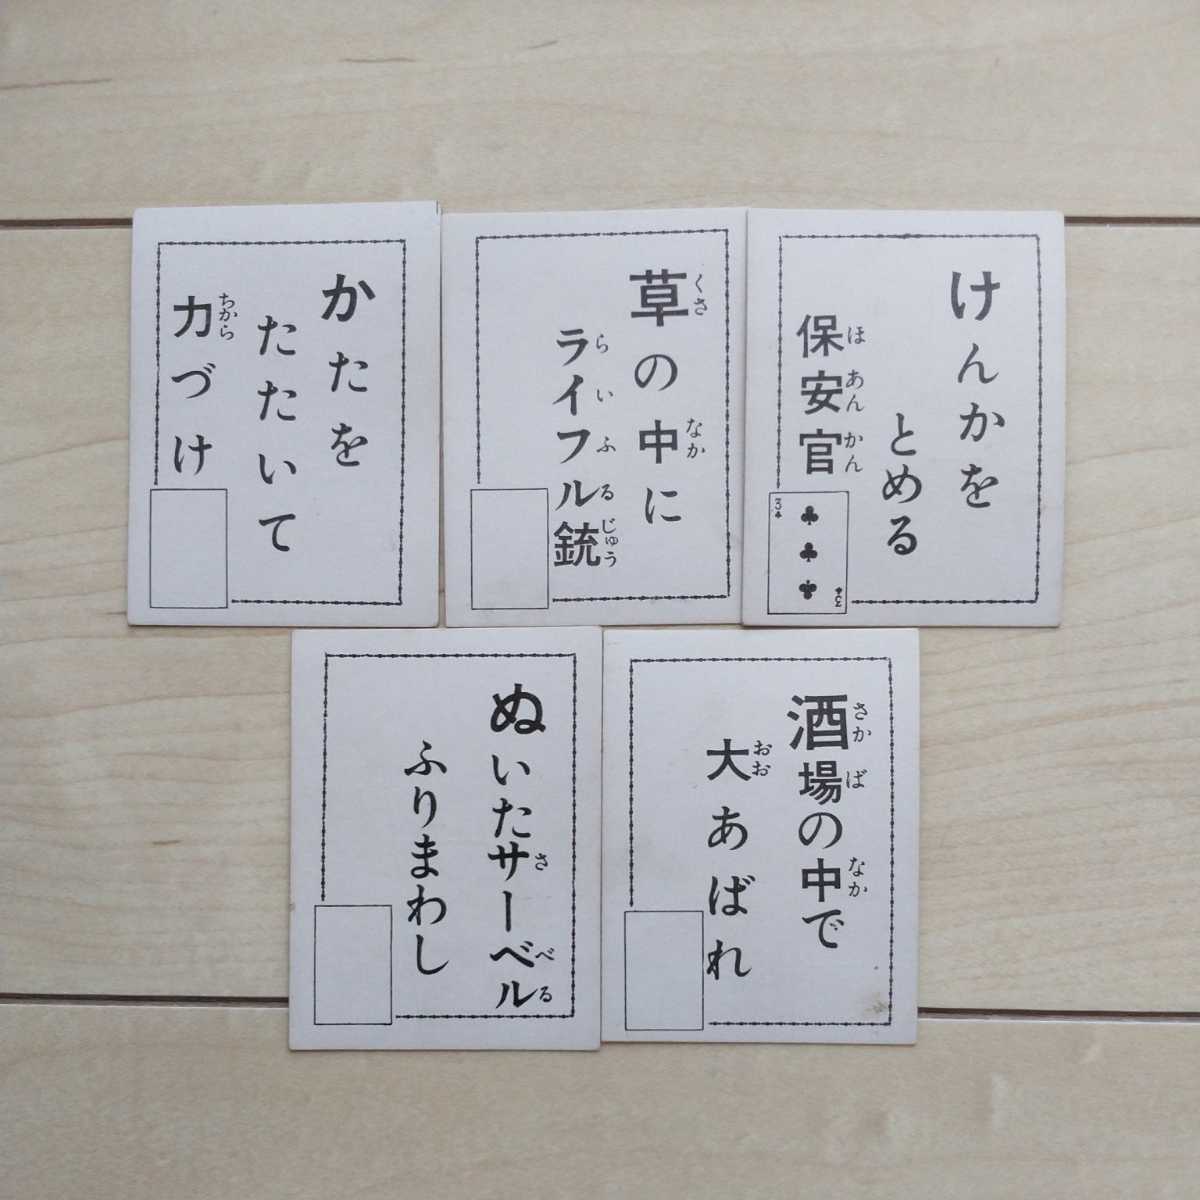 かたを
たたいて
力づけ
ちから
草の中に
ライフル銃
くさ
なか
らいふるじゅう
けんかを
とめる
保安官
ほあんかん
3
3
ぬいたサーベル
ふりまわし
さ
べる
酒場の中で
大あばれ
さかば
なか
おお